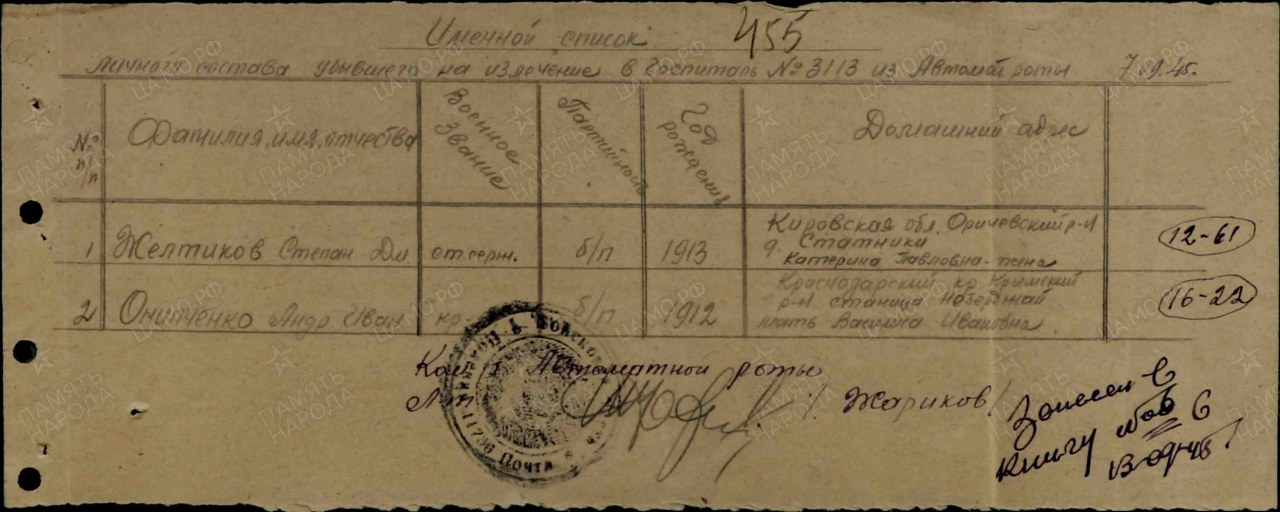 Именной список 455
личного состава убывшего на излечение в госпиталь №3113 из Автомат роты 7.09.45.
№ п/п
Фамилия, имя, отчества
Военное Звание
Партийность
Год рождения
Домашний адрес
1 Желтиков Степан Дм. ст.серж. б/п 1913 Кировская обл. Оричевский р-н
д. Статники
Катерина Павловна-жена
12-61
2 Онипченко Андр Иван кр- б/п 1912 Краснодарский кр. Крымский
р-н станица
мать Василиса Ивановна
16-22
Ком-р Автоматной роты
Лт /Жариков/
Полевая Почта
Занесен в
книгу
ЦАМО.РФ
ПАМЯТЬ НАРОДА